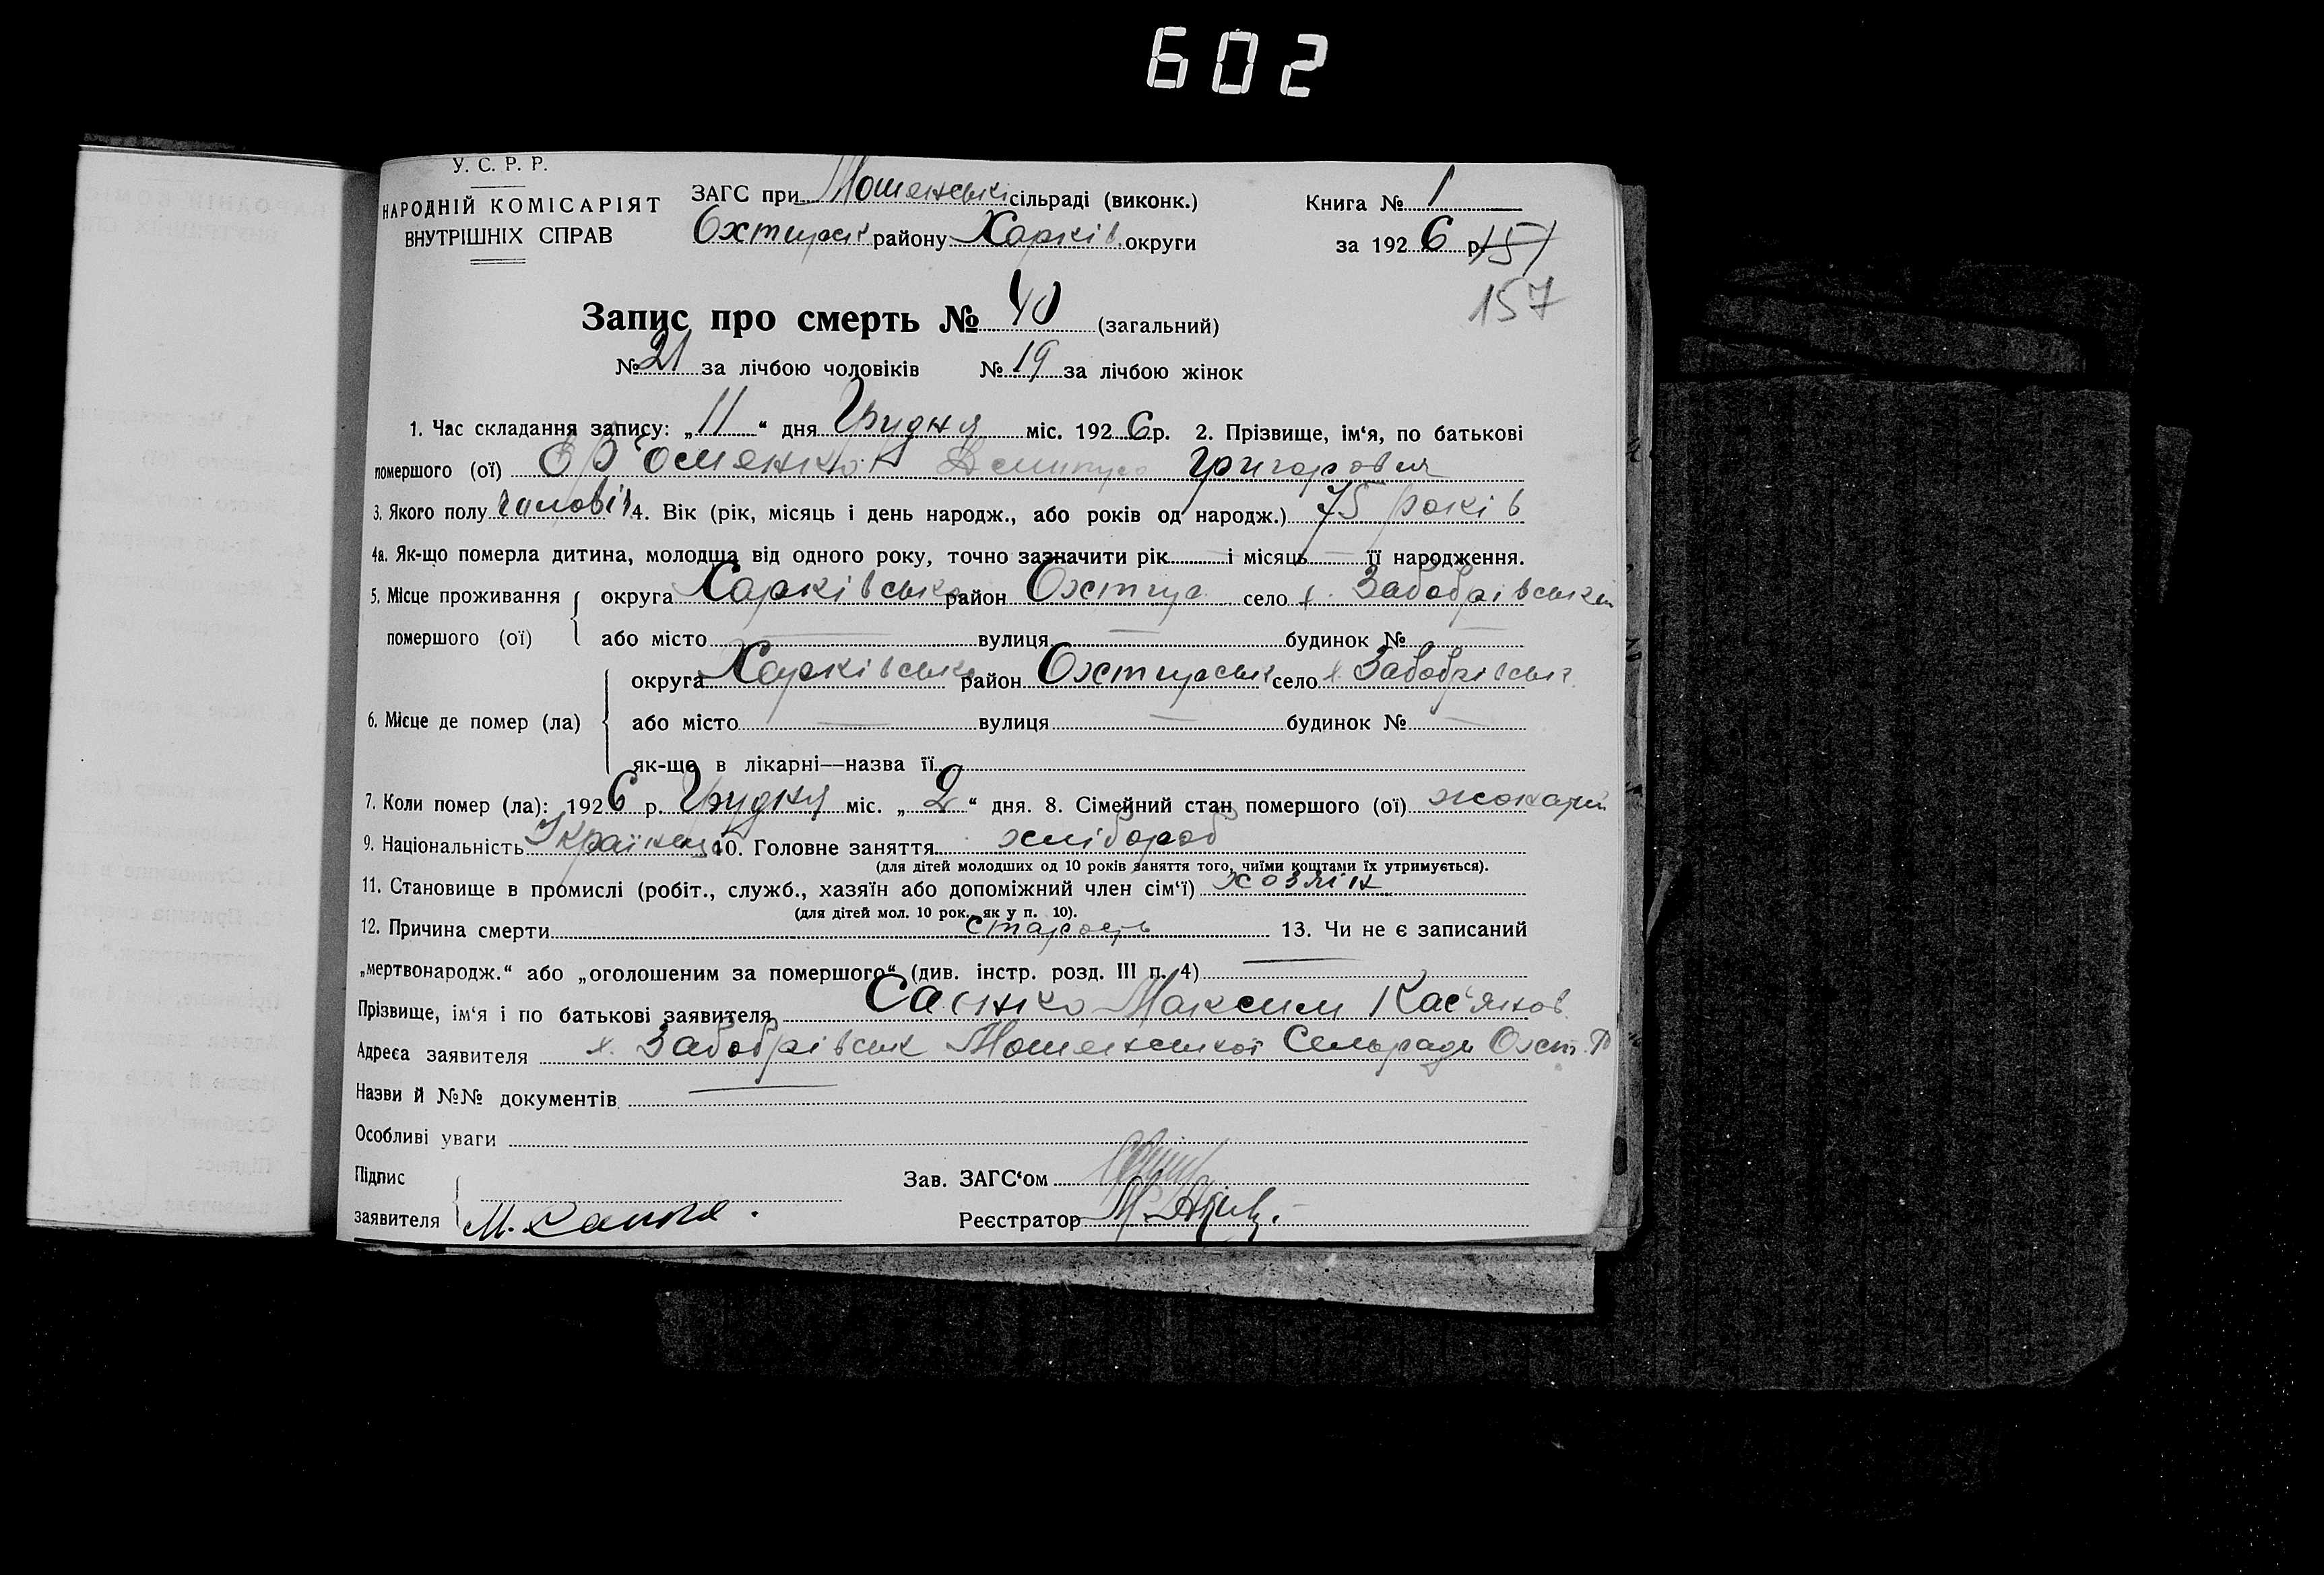 602
У. С. Р. Р.
НАРОДНІЙ КОМІСАРІЯТ
ВНУТРІШНІХ СПРАВ
ЗАГС при Мошенські сільраді (виконк.)
Охтирськ району Харків. округи
Книга № 1
за 1926 р. 151
157
Запис про смерть № 40 (загальний)
№ 21 за лічбою чоловіків № 19 за лічбою жінок
1. Час складання запису: „11“ дня Грудня міс. 1926 р. 2. Прізвище, ім‘я, по батькові
помершого (ої) Григорович
3. Якого полу чоловіч 4. Вік (рік, місяць і день народж., або років од народж.) 75 років
4а. Як-що померла дитина, молодша від одного року, точно зазначити рік — і місяць — її народження.
5. Місце проживання помершого (ої)
округа Харківська район Охтир. село х. Забобрівський
або місто — вулиця — будинок № —
6. Місце де помер (ла)
округа Харківська район Охтирськ село х. Забобрівськ.
або місто — вулиця — будинок № —
як-що в лікарні—назва її
7. Коли помер (ла): 1926 р. Грудня міс. „2“ дня. 8. Сімейний стан помершого (ої) жонатий
9. Національність Українець 10. Головне заняття хлібороб
(для дітей молодших од 10 років заняття того, чиїми коштами їх утримується).
11. Становище в промислі (робіт., служб., хазяїн або допоміжний член сім‘ї) хозяїн
(для дітей мол. 10 рок. як у п. 10).
12. Причина смерти старость 13. Чи не є записаний
„мертвонародж.“ або „оголошеним за помершого“ (див. інстр. розд. III п. 4) —
Прізвище, ім‘я і по батькові заявителя Максим Кас‘янов.
Адреса заявителя х. Забобрівськ Мошенської Сельради Охт. Р
Назви й №№ документів —
Особливі уваги
Підпис заявителя
Зав. ЗАГС‘ом
Реєстратор